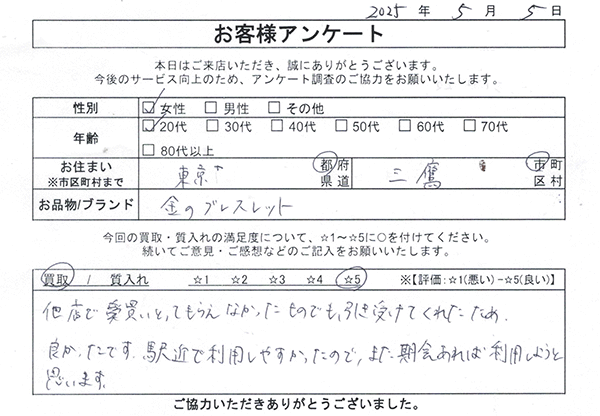 2025 年 5 月 5 日
お客様アンケート
本日はご来店いただき、誠にありがとうございます。
今後のサービス向上のため、アンケート調査のご協力をお願いいたします。
性別 ☑ 女性 □ 男性 □ その他
年齢 ☑ 20代 □ 30代 □ 40代 □ 50代 □ 60代 □ 70代
□ 80代以上
お住まい ※市区町村まで 東京 都府県道 三鷹 市町区村
お品物/ブランド 金のブレスレット
今回の買取・質入れの満足度について、☆1～☆5に○を付けてください。
続いてご意見・ご感想などのご記入をお願いいたします。
買取 / 質入れ ☆1 ☆2 ☆3 ☆4 ☆5 ※【評価:☆1(悪い)-☆5(良い)】
他店で買いとってもらえなかったものでも、引き受けてくれたため
良かったです。駅近で利用しやすかったので、また機会あれば利用しようと
思います。
ご協力いただきありがとうございました。